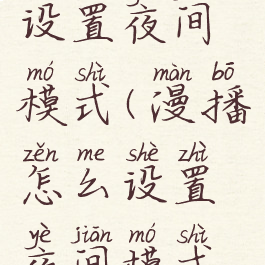 设置夜间
mó shì màn bō
模式(漫播
zěn me shè zhì
怎么设置
yè jiān mó shì
夜间模式